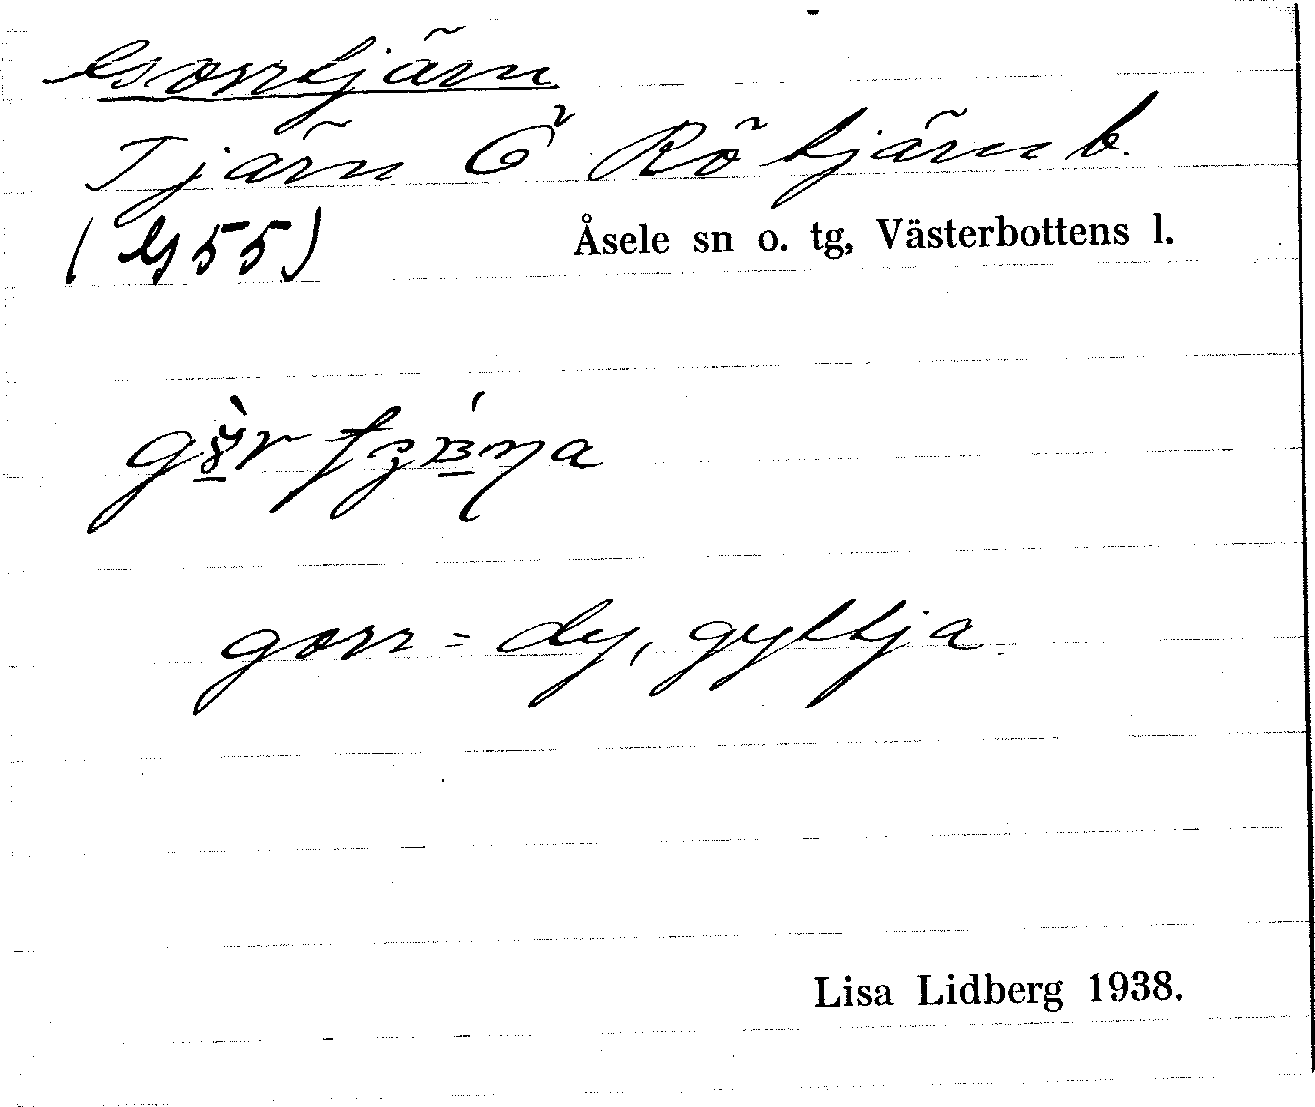 Gorrtjärn
Tjärn Ö Rötjärnb.
(G55)
Åsele sn o. tg, Västerbottens l.
gorr = dy, gyttja
Lisa Lidberg 1938.